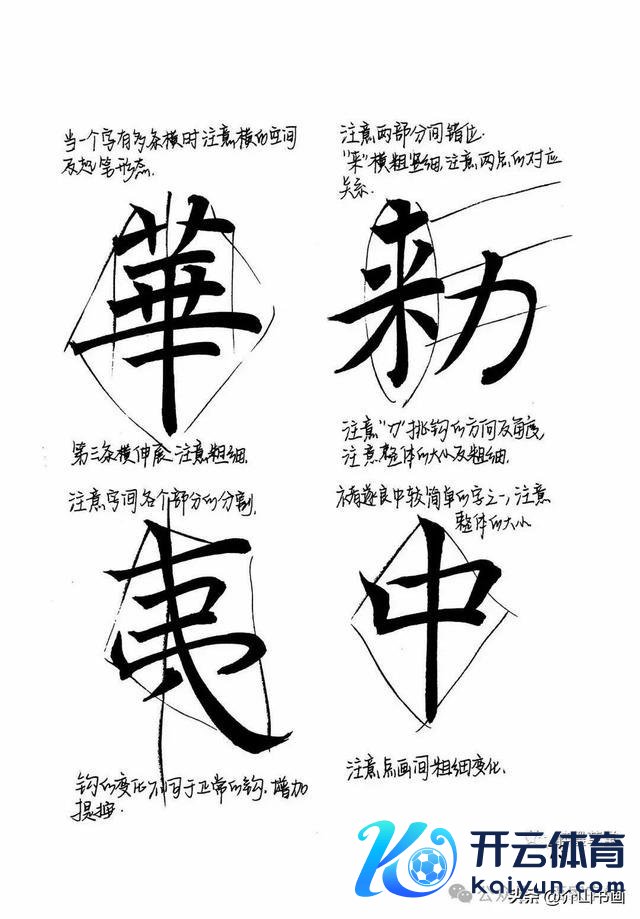 当一个字有多条横时注意横的空间
及起笔形态.
注意两部分间错位.
"来"横粗竖细,注意两点的对应
关系.
華
勑
第三条横伸展 注意粗细.
注意"力"挑钩的方向及角度
注意整体的大小及粗细.
注意字间各个部分的分割.
褚遂良中较简单的字之一,注意
整体的大小
夷
中
钩的变化不同于正常的钩,增加
提按.
注意点画间粗细变化.
开云体育
kaiyun.com
公众
头条 @介山书画